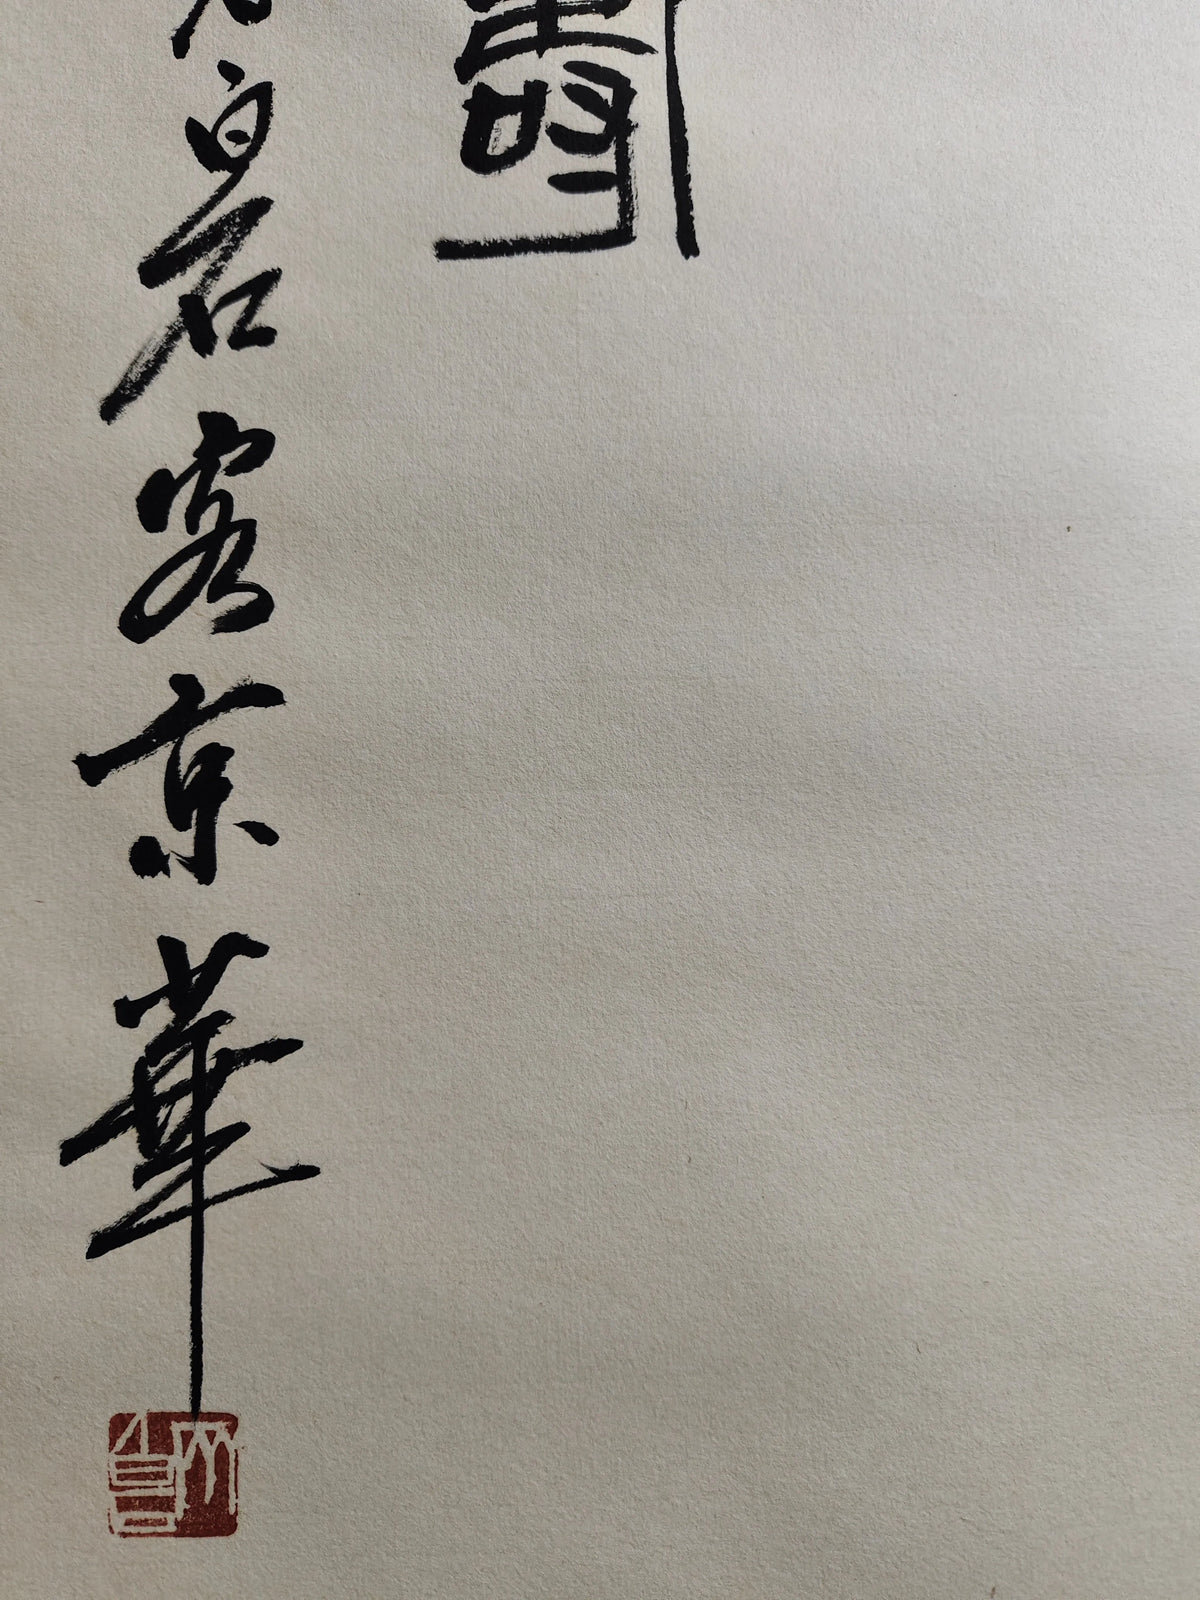 壽
白石客京華